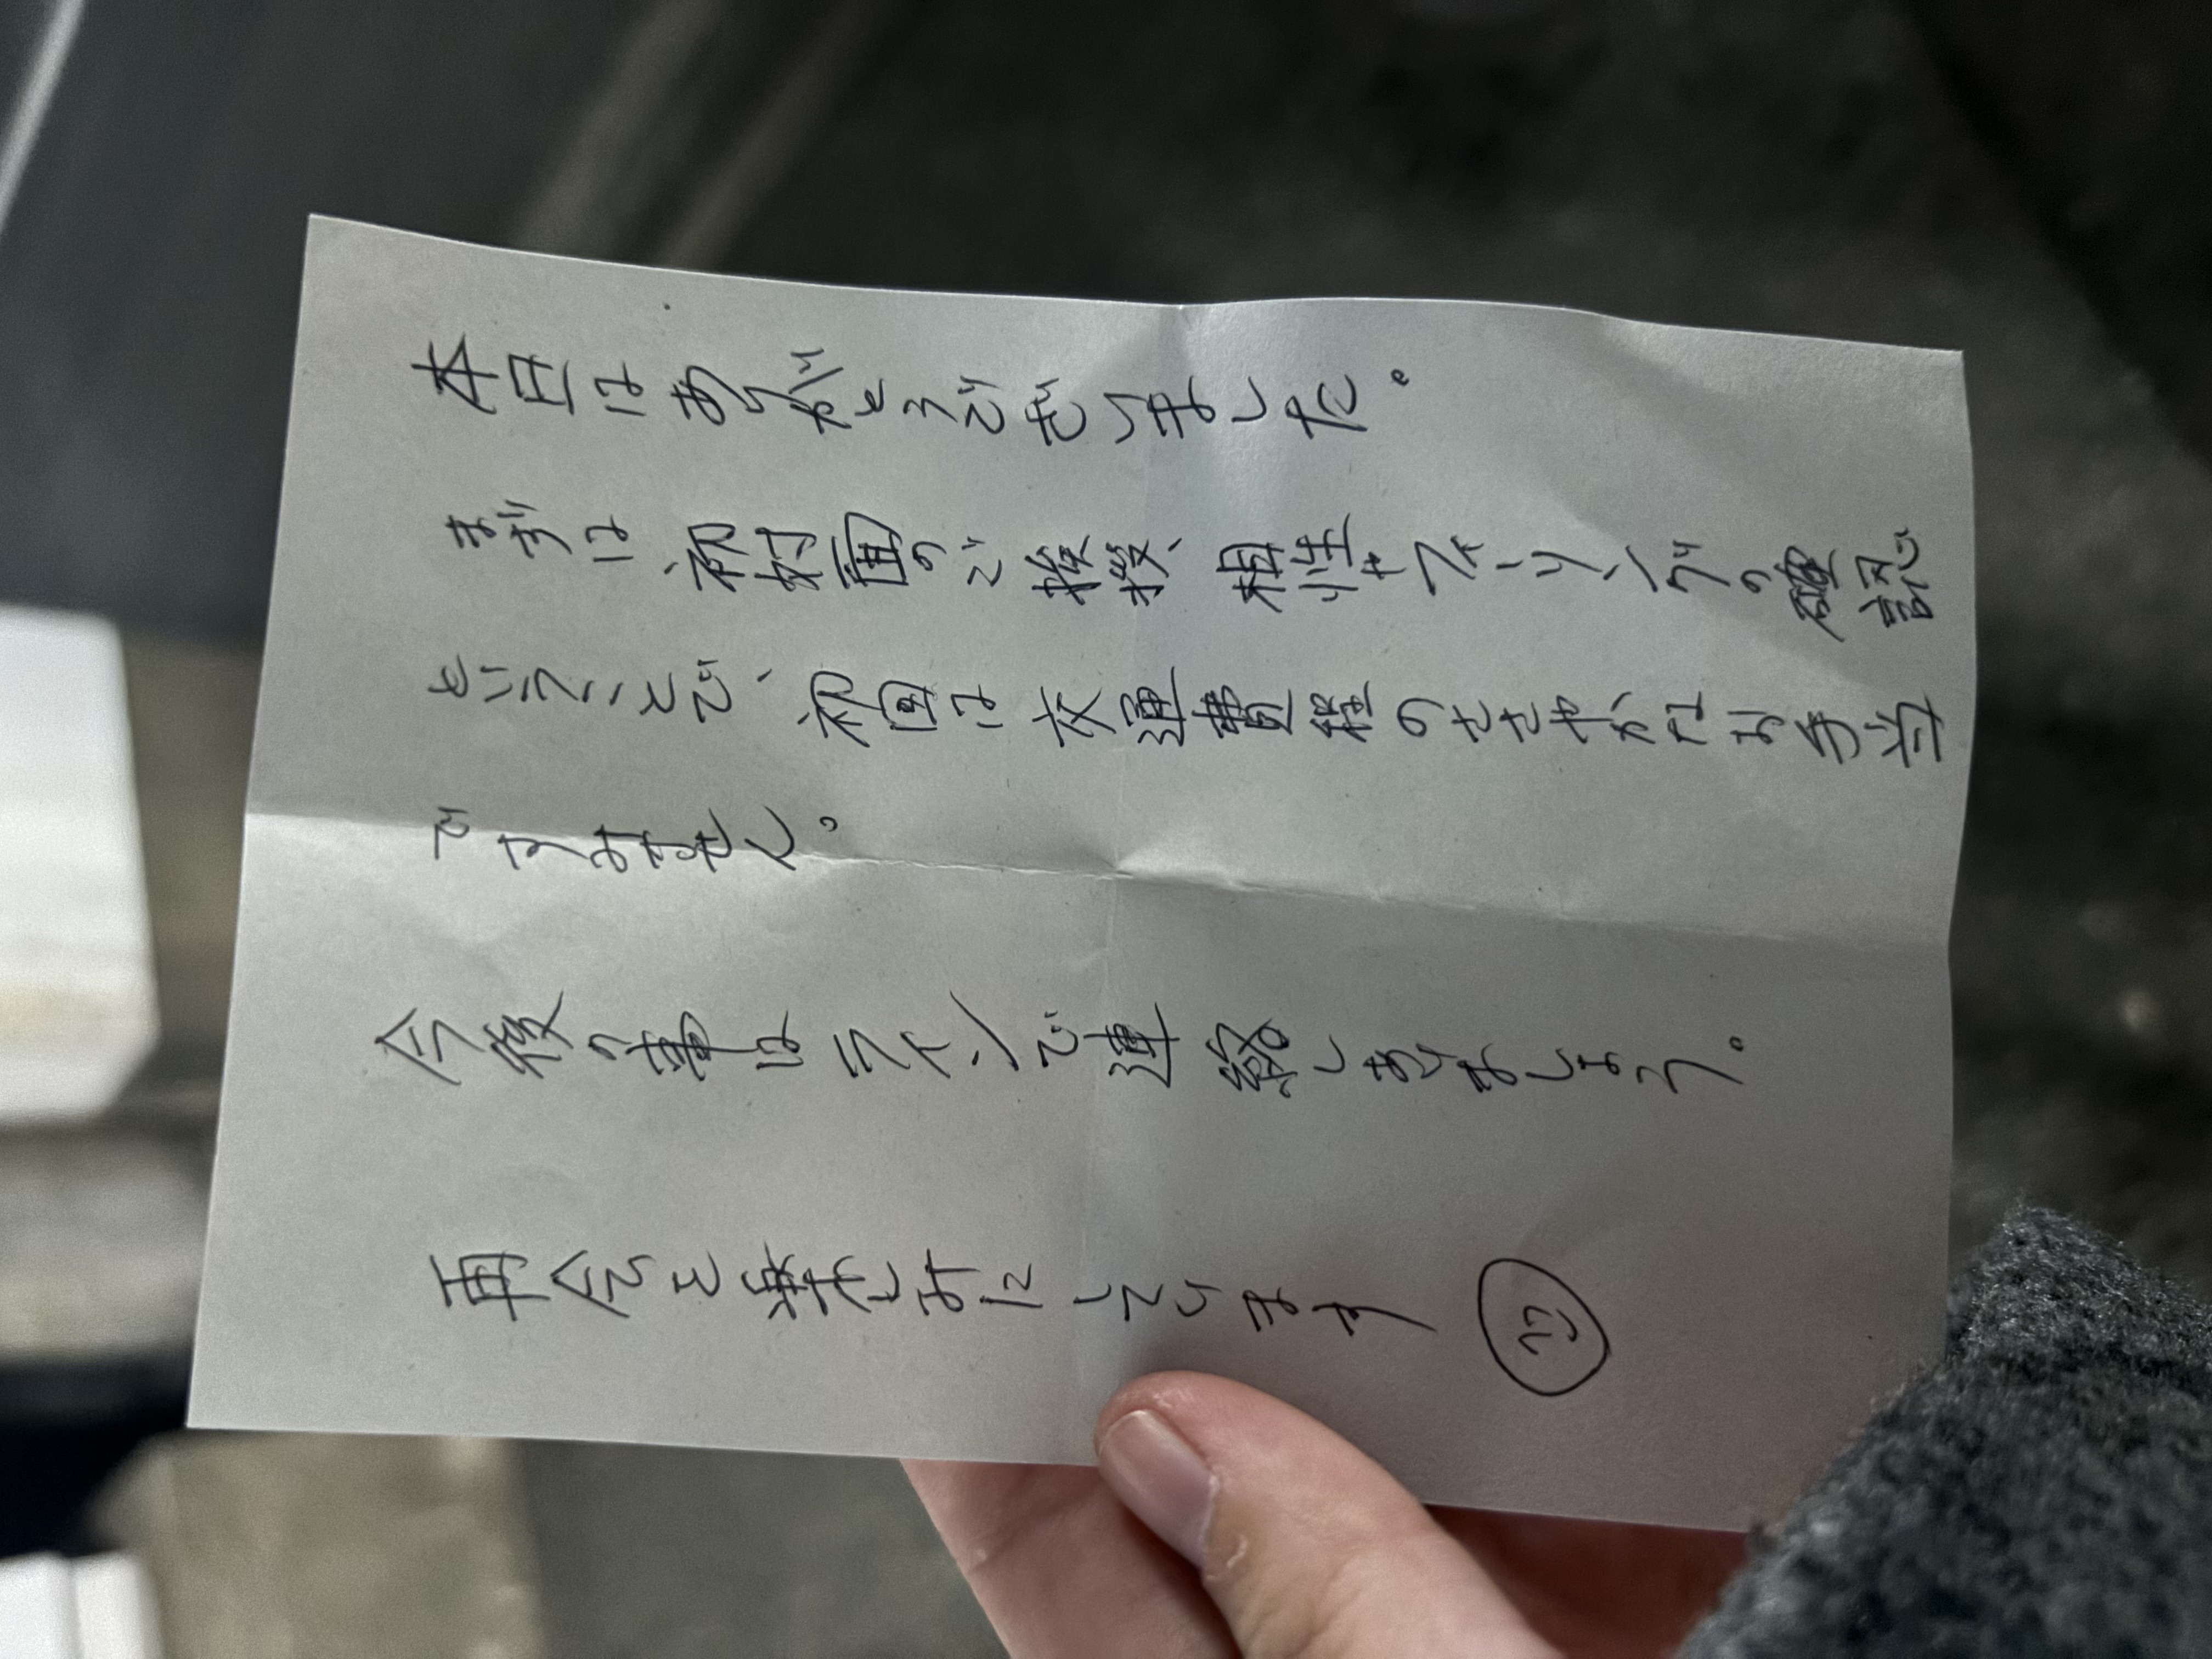 本日はありがとうございました。
まずは、初対面のご挨拶、相性やフィーリングの確認
ということで、初回は交通費程のささやかなお手当
ですみません。
今後の事はラインで連絡しあいましょう。
再会を楽しみにしています